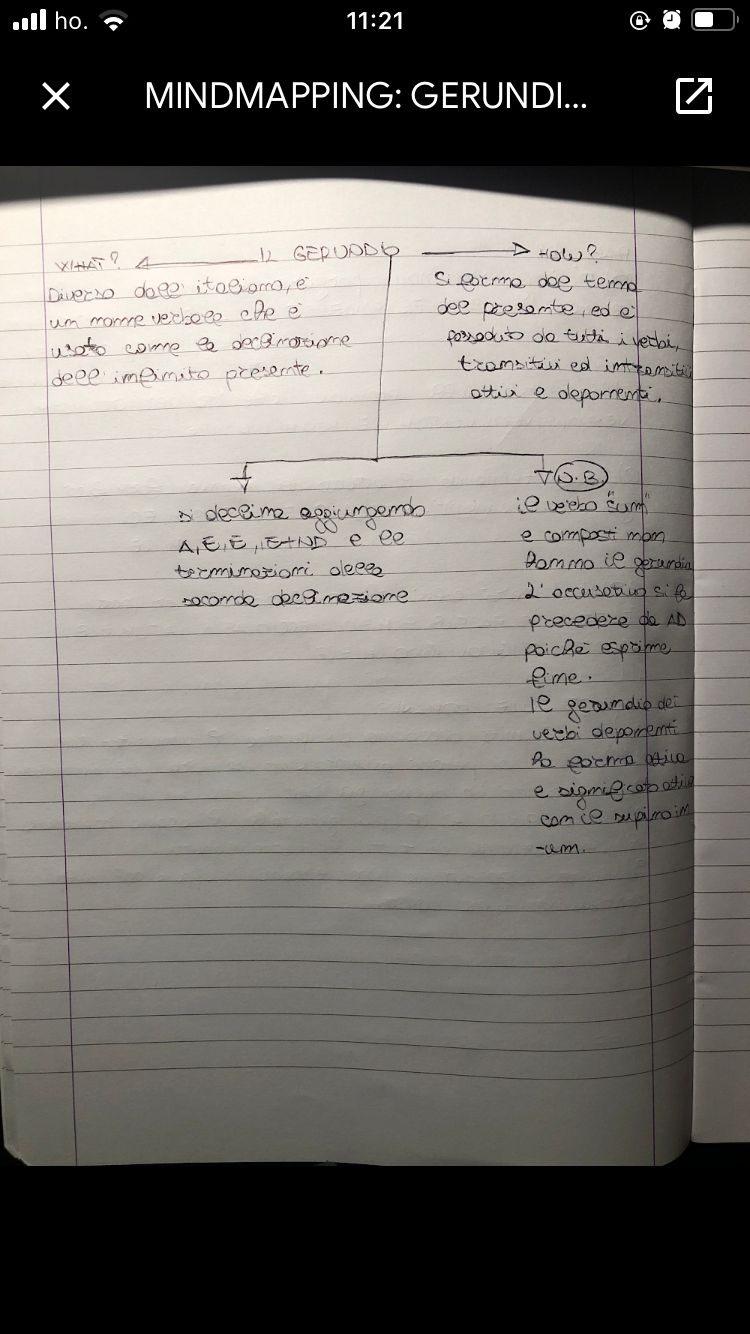 ho.
11:21
MINDMAPPING: GERUNDI...
IL GERUNDIO
WHAT?
Diverso dall'italiano, è
un nome verbale che è
usato come la declinazione
dell'infinito presente.
HOW?
Si forma dal tema
del presente, ed è
posseduto da tutti i verbi,
transitivi ed intransitivi
attivi e deponenti.
si declina aggiungendo
A, E, E, E+ND e le
terminazioni della
seconda declinazione
N.B
il verbo "sum"
e composti non
hanno il gerundio
L'accusativo si fa
precedere da AD
poiché esprime
fine.
Il gerundio dei
verbi deponenti
ha forma attiva
e significato attivo
con il supino in
-um.